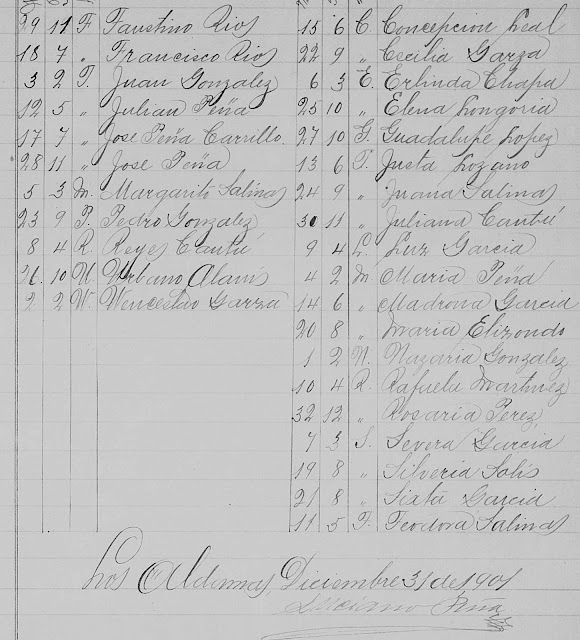 29 11 F Faustino Rios
18 7 " Francisco Rios
3 2 J. Juan Gonzalez
12 5 " Julian Peña
17 7 " Jose Peña Carrillo.
28 11 " Jose Peña
5 3 M. Margarito Salinas
23 9 P. Pedro Gonzalez
8 4 R. Reyes Cantú
26 10 U Urbano Alanis
2 2 W. Wenceslao Garza
15 6 C. Concepcion Leal
22 9 " Cecilia Garza
6 3 E. Erlinda Chapa
25 10 " Elena Longoria
27 10 G Guadalupe Lopez
13 6 J. Justa Lozano
24 9 " Juana Salinas
30 11 " Juliana Cantú
9 4 L. Luz Garcia
4 2 M Maria Peña
14 6 " Madrona Garcia
20 8 " Maria Elizondo
1 2 N. Nazaria Gonzalez
10 4 R. Rafaela Martinez
32 12 " Rosaria Perez
7 3 S. Severa Garcia
19 8 " Silveria Solis
21 8 " Sixta Garcia
11 5 T. Teodora Salinas
Los Aldamas, Diciembre 31 de 1901
Luciano Peña